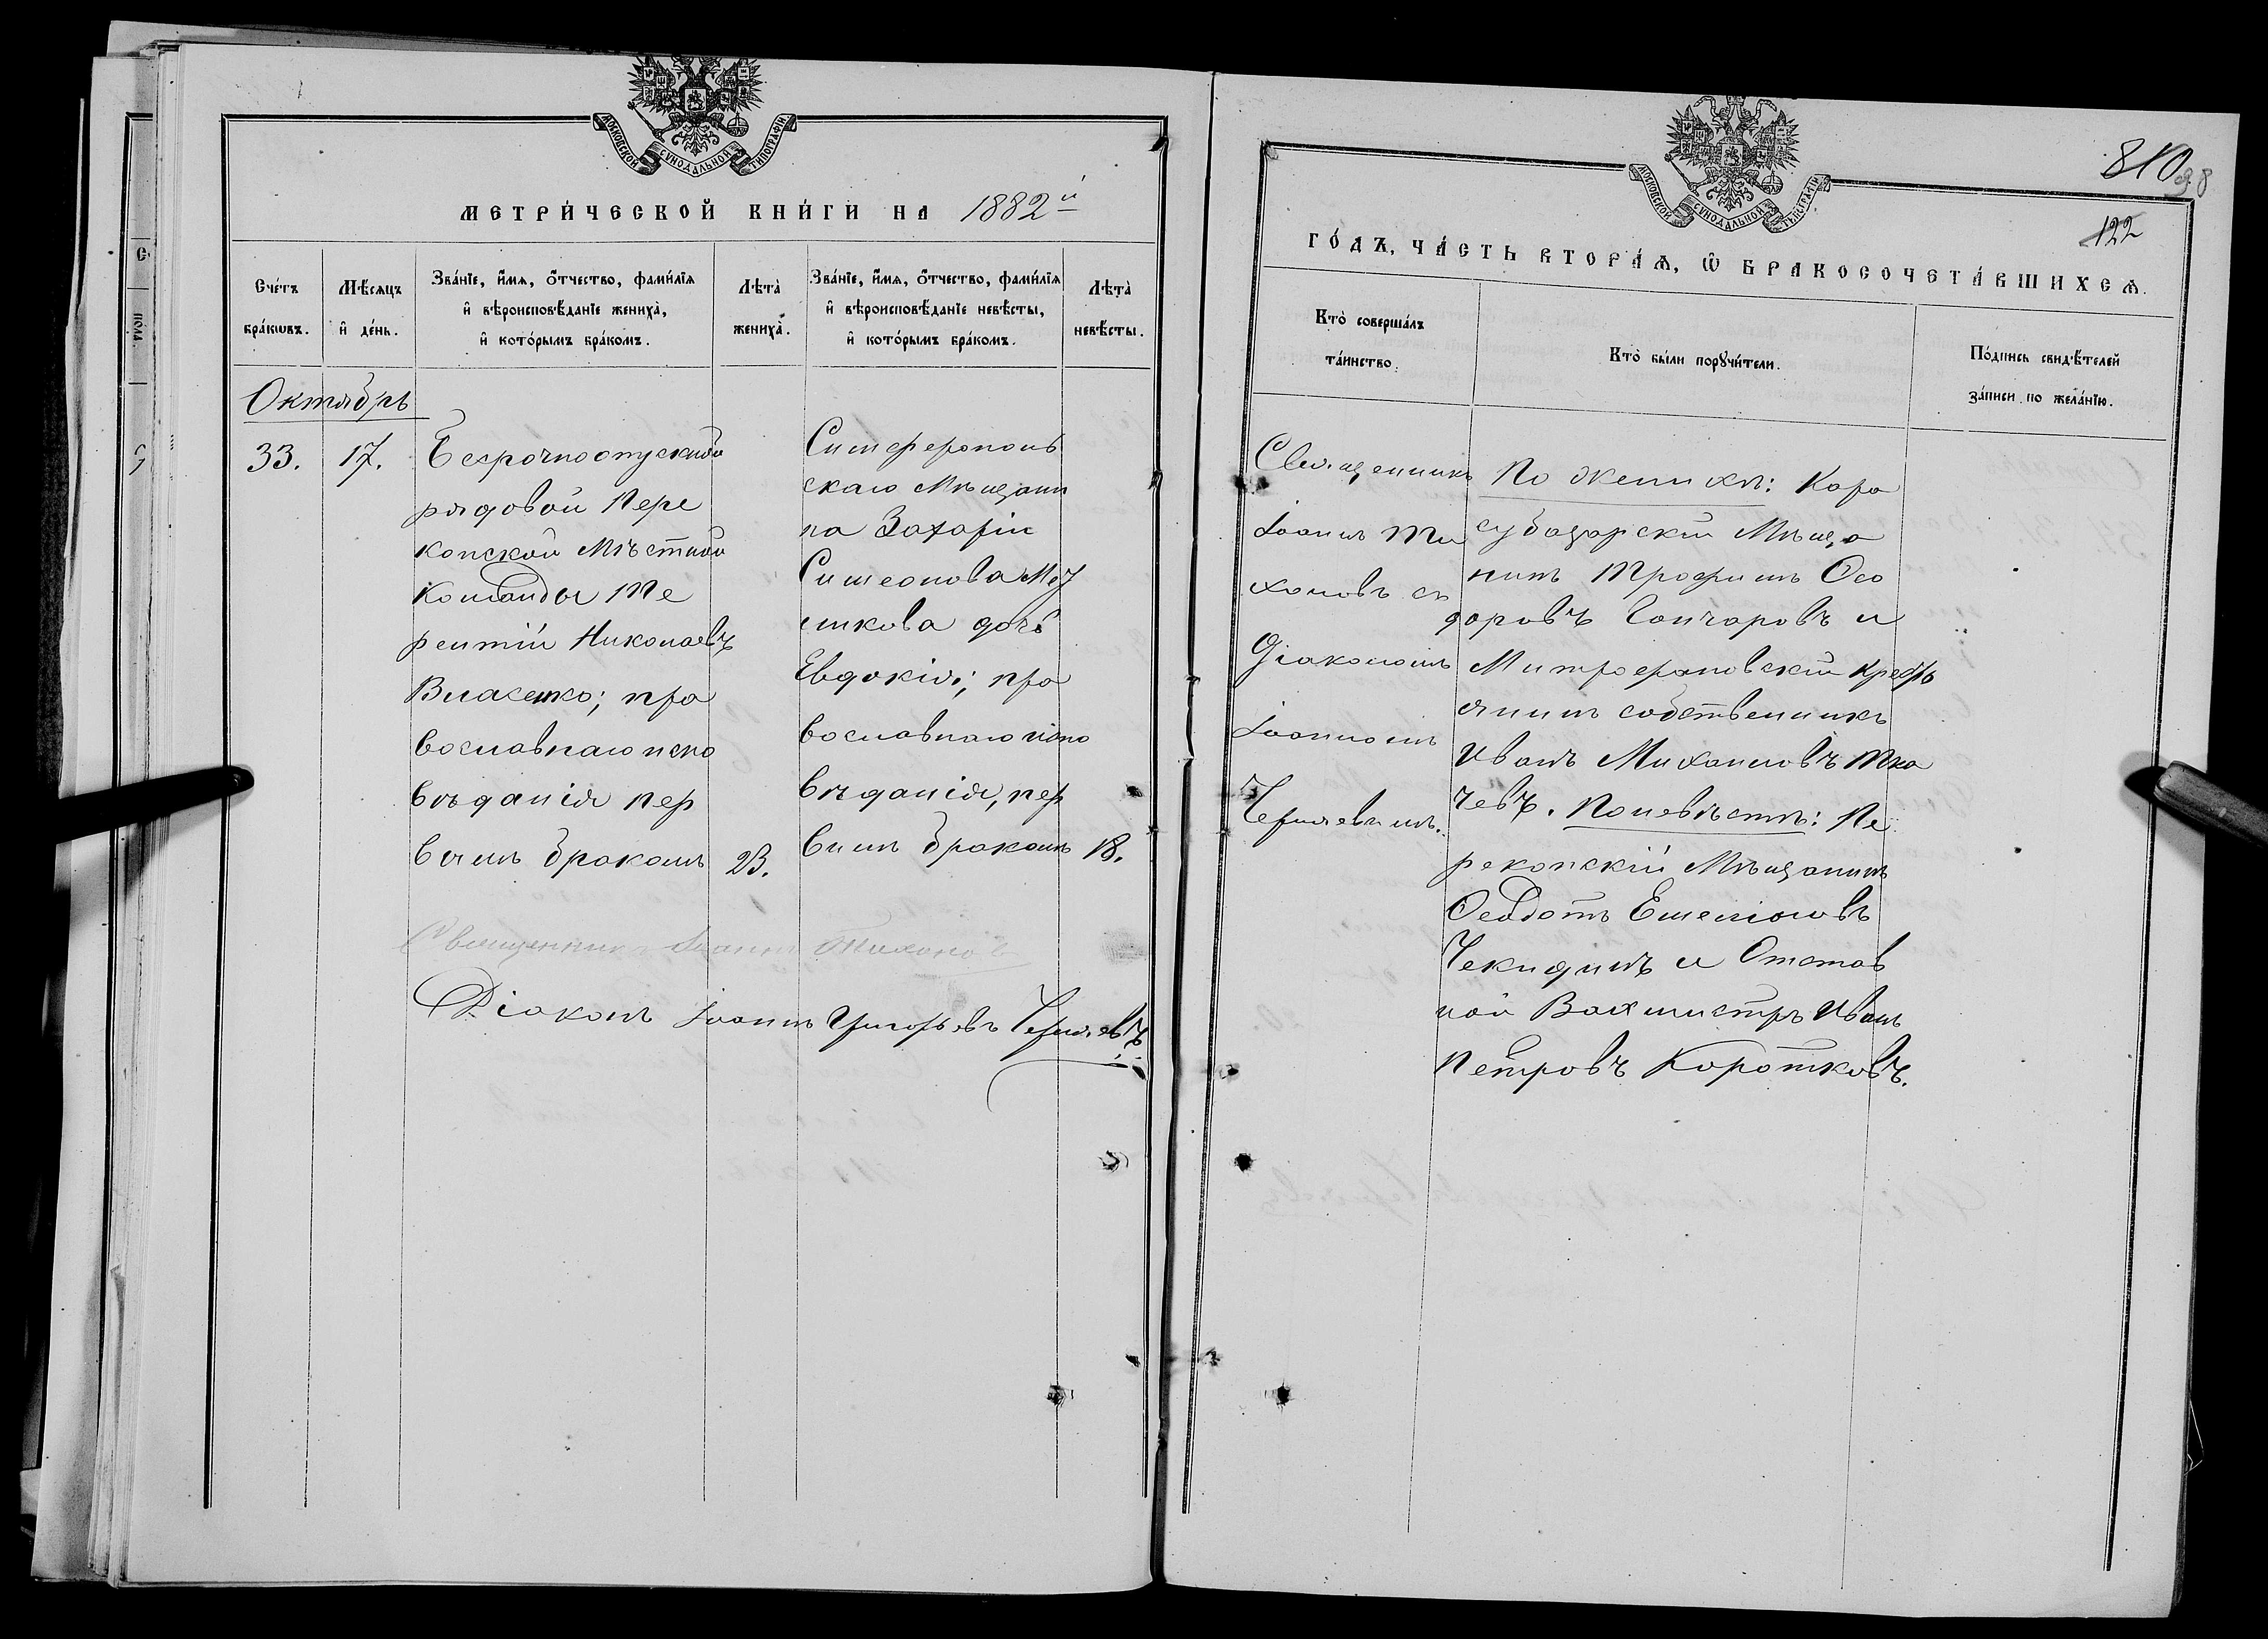 МОСКОВСКОЙ СУНОДАЛЬНОЙ ТИПОГРАФІИ
МЕТРИ́ЧЕСКОЙ КНИ́ГИ НА 1882й
Сче́тъ бра́кѡвъ.
Мѣ́сяцъ и҆ де́нь.
Зва́нїе, и҆́мѧ, ѻ҆́тчество, фами́лїѧ
и҆ вѣроисповѣ́данїе жениха̀,
и҆ кото́рымъ бра́комъ.
Лѣ́та̀ жениха̀.
Зва́нїе, и҆́мѧ, ѻ҆́тчество, фами́лїѧ
и҆ вѣроисповѣ́данїе невѣ́сты,
и҆ кото́рымъ бра́комъ.
Лѣ́та̀ невѣ́сты.
Октябрь
33.
17.
Безрочноотпускной
рядовой Пере
копской Мѣстной
Команды Те
рентій Николаевъ
Власенко; пра
вославнаго испо
вѣданія пер
вымъ бракомъ
23.
Симферополь
скаго Мѣщани
на Захарія
Симеонова
дочь
Евдокія; пра
вославнаго испо
вѣданія, пер
вымъ бракомъ
18.
Священникъ Іоаннъ Тихоновъ
Діаконъ Іоаннъ Григорьевъ Черняевъ
МОСКОВСКОЙ СУНОДАЛЬНОЙ ТИПОГРАФІИ
810
122
ГО́ДЪ, ЧА́СТЬ ВТОРА́Ѧ, Ѡ҆ БРАКОСОЧЕТА́ВШИХСѦ.
Кто̀ соверша́лъ
та́инство.
Кто̀ бы́ли порꙋчи́тели.
По́дпись свидѣ́телей
за́писи по жела́нїю.
Священникъ
Іоаннъ Ти
хоновъ съ
Діакономъ
Іоанномъ
Черняевымъ.
По женихѣ: Кара
субазарскій Мѣща
нинъ Трофимъ Ѳео
доровъ Гончаровъ и
Митрофановскій кресть
янинъ собственникъ
Иванъ Михаиловъ Тка
чевъ. По невѣстѣ: Пе
рекопскій Мѣщанинъ
Ѳеодотъ Емеліановъ
Чекидинъ и Отстав
ной Вахмистръ Иванъ
Петровъ Коротковъ.